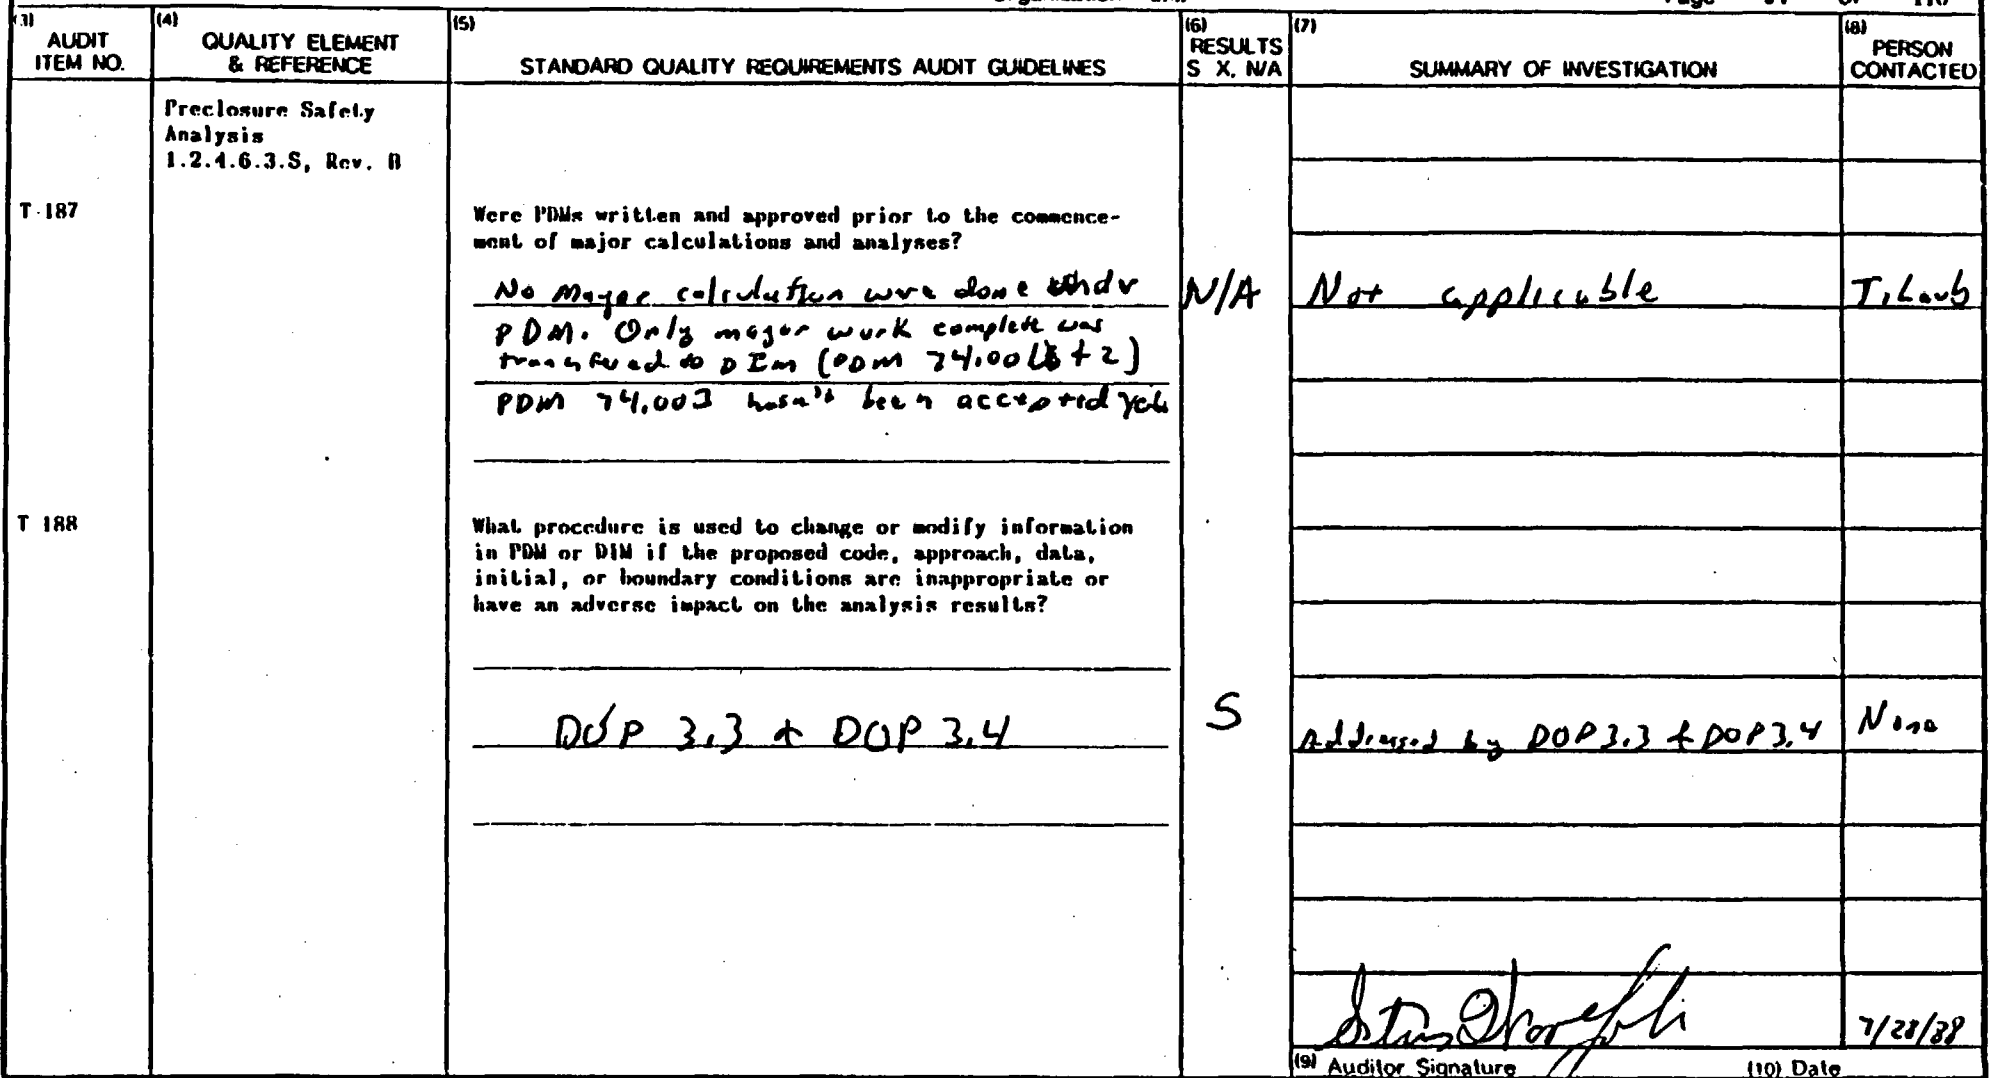 (3)
AUDIT
ITEM NO.
(4)
QUALITY ELEMENT
& REFERENCE
(5)
STANDARD QUALITY REQUIREMENTS AUDIT GUIDELINES
(6)
RESULTS
S X, N/A
(7)
SUMMARY OF INVESTIGATION
(8)
PERSON
CONTACTED
Preclosure Safety
Analysis
1.2.4.6.3.S, Rev. B
T-187
Were PDMs written and approved prior to the commence-
ment of major calculations and analyses?
No Mager calculation were done under
PDM. Only magor work complete was
transfered to DIM (PDM 74.00 + 2)
PDM 74.003 hasn't been accepted yet
N/A
Not applicable
T. Laub
T 188
What procedure is used to change or modify information
in PDM or DIM if the proposed code, approach, data,
initial, or boundary conditions are inappropriate or
have an adverse impact on the analysis results?
DOP 3.3 + DOP 3.4
S
Addressed by DOP 3.3 + DOP 3.4
None
7/28/88
(9) Auditor Signature
(10) Date